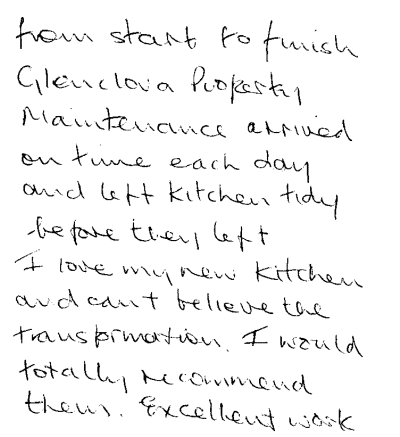 from start to finish
Glenclova Property
Maintenance arrived
on time each day
and left kitchen tidy
before they left
I love my new kitchen
and can't believe the
transformation. I would
totally recommend
them. Excellent work